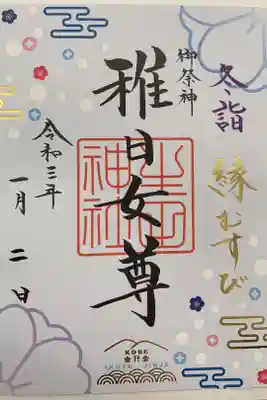 冬詣
縁むすび
御祭神
稚日女尊
生田神社
令和三年
一月二日
KOBE
IKUTA JINJA